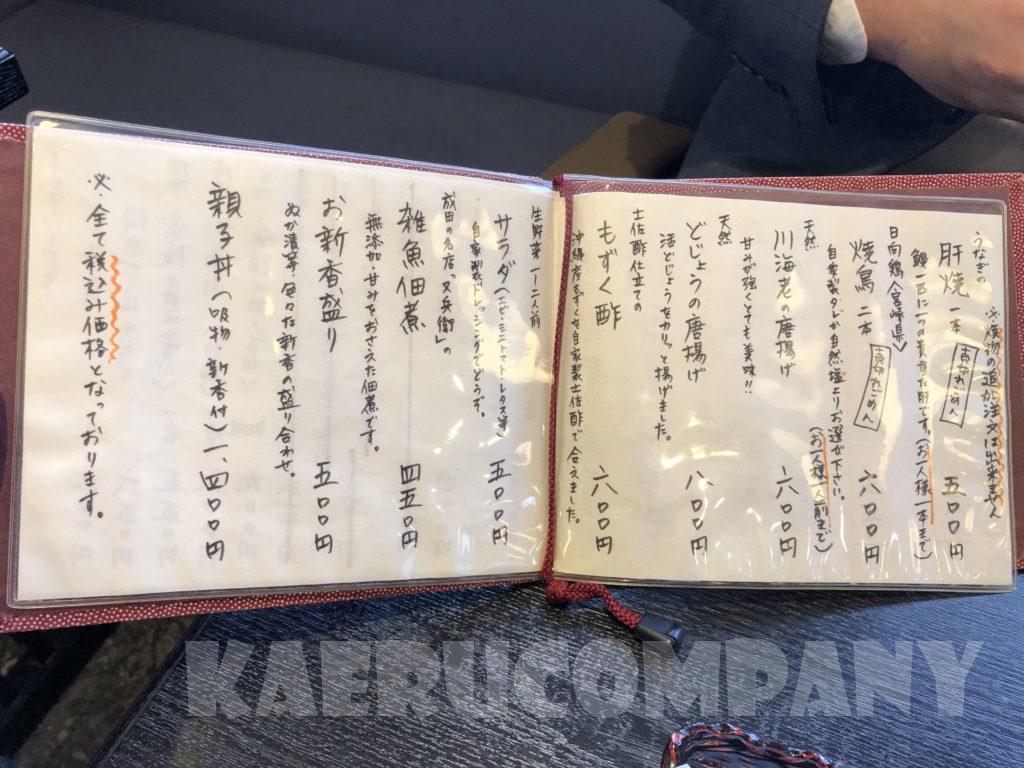 うなぎの
※焼物の追加注文は出来ません
肝焼 一本 売切れごめん 五〇〇円
鰻一匹に一つの貴重な肝です。(お一人様一本まで)
日向鶏〈宮崎県〉
焼鳥 二本 売切れごめん 六〇〇円
自家製タレか自然塩よりお選び下さい。
(お一人様一人前まで)
天然
川海老の唐揚げ 六〇〇円
甘みが強くとても美味!!
天然
どじょうの唐揚げ 八〇〇円
活どじょうをカリッと揚げました。
土佐酢仕立ての
もずく酢 六〇〇円
沖縄産もずくを自家製土佐酢で合えました。
生野菜 一〜二人前
サラダ(エビ・ミニトマト・レタス等) 五〇〇円
自家製ドレッシングでどうぞ。
成田の名店「又兵衛」の
雑魚佃煮 四五〇円
無添加・甘みをおさえた佃煮です。
お新香盛り 五〇〇円
ぬか漬等色々な新香の盛り合わせ。
親子丼(吸物・新香付) 一、四〇〇円
※全て税込み価格となっております。
KAERUCOMPANY